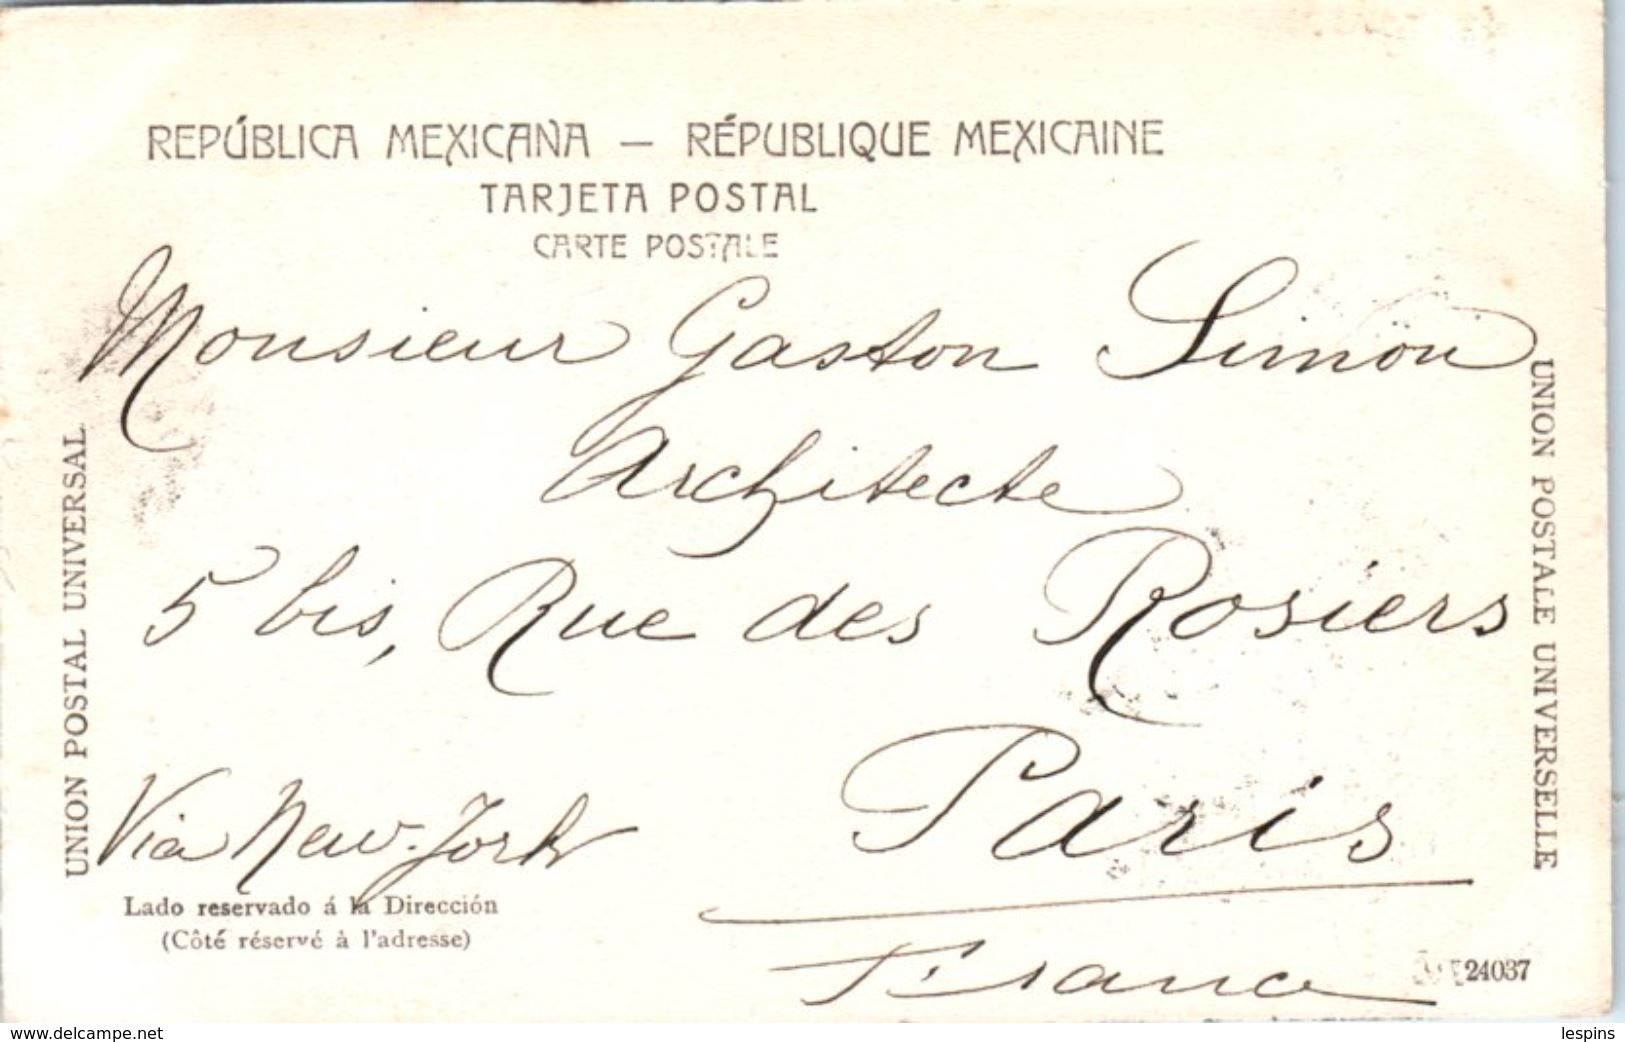 REPÚBLICA MEXICANA — RÉPUBLIQUE MEXICAINE
TARJETA POSTAL
CARTE POSTALE
Monsieur Gaston Simon
Architecte
5 bis, Rue des Rosiers
Paris
France
Via New-York
UNION POSTAL UNIVERSAL
UNION POSTALE UNIVERSELLE
Lado reservado á la Dirección
(Côté réservé à l'adresse)
24037
www.delcampe.net
lespins